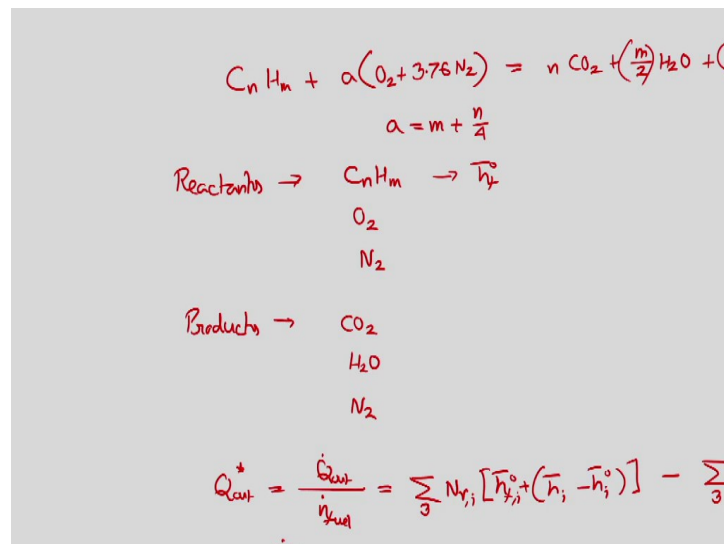 CnHm + a(O2 + 3.76 N2) = n CO2 + (m/2) H2O + (
a = m + n/4
Reactants → CnHm → h̄°f
O2
N2
Products → CO2
H2O
N2
Q*out = Q̇out / ṅfuel = Σ3 Nr,i [h̄°f,i + (h̄i - h̄°i)] - Σ3